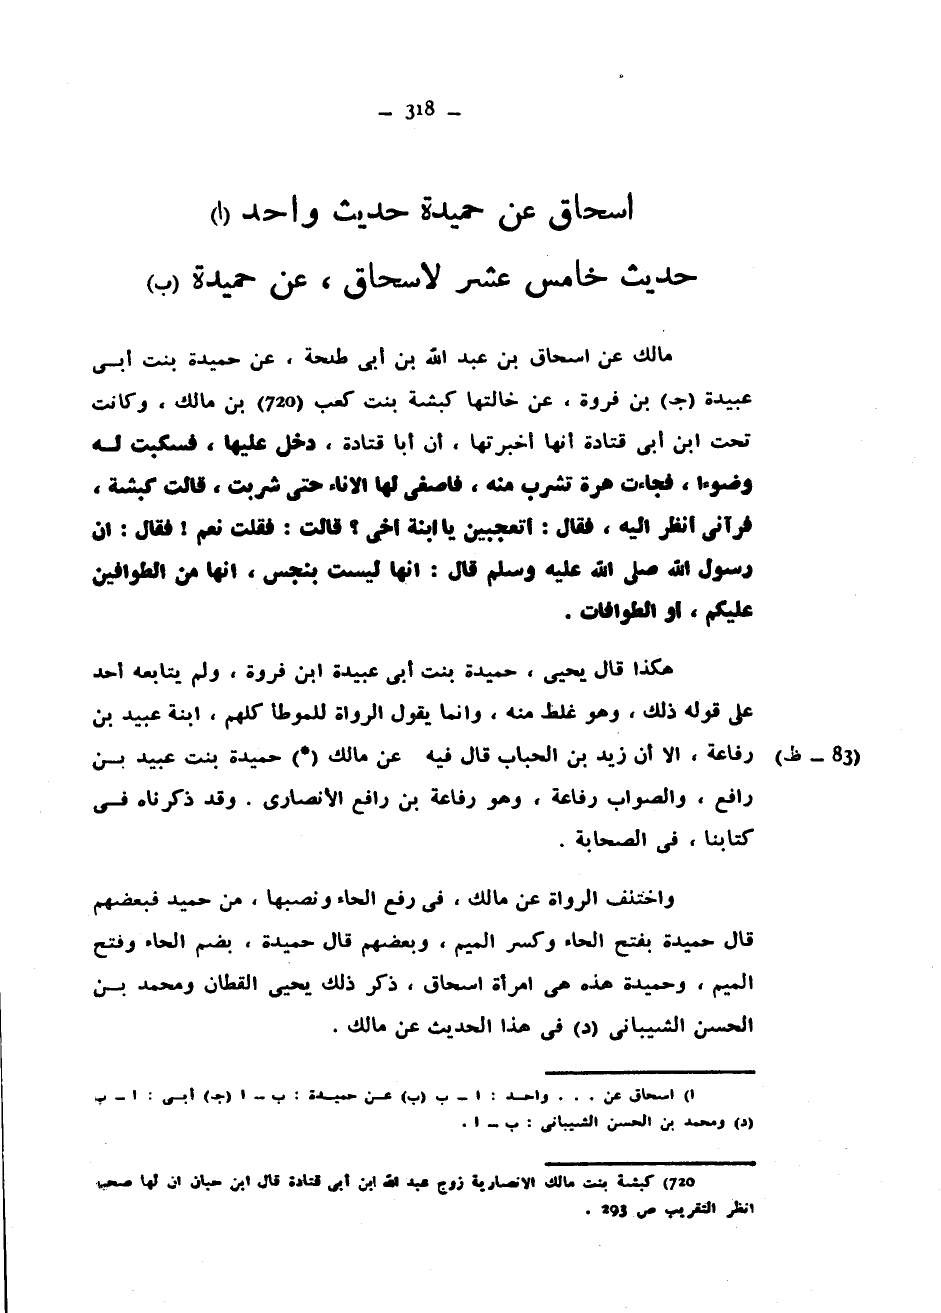 – 318 –
اسحاق عن حميدة حديث واحد (ا)
حديث خامس عشر لاسحاق ، عن حميدة (ب)
مالك عن اسحاق بن عبد الله بن أبى طلحة ، عن حميدة بنت أبـى
عبيدة (جـ) بن فروة ، عن خالتها كبشة بنت كعب (720) بن مالك ، وكانت
تحت ابن أبى قتادة أنها أخبرتها ، أن أبا قتادة ، دخل عليها ، فسكبت لـه
وضوءا ، فجاءت هرة تشرب منه ، فاصغى لها الاناء حتى شربت ، قالت كبشة ،
فرآنى أنظر اليه ، فقال : اتعجبين يا ابنة اخى ؟ قالت : فقلت نعم ! فقال : ان
رسول الله صلى الله عليه وسلم قال : انها ليست بنجس ، انها من الطوافين
عليكم ، او الطوافات .
هكذا قال يحيى ، حميدة بنت أبى عبيدة ابن فروة ، ولم يتابعه أحد
على قوله ذلك ، وهو غلط منه ، وانما يقول الرواة للموطأ كلهم ، ابنة عبيد بن
رفاعة ، الا أن زيد بن الحباب قال فيه عن مالك (*) حميدة بنت عبيد بـن (83 – ظ)
رافع ، والصواب رفاعة ، وهو رفاعة بن رافع الأنصارى . وقد ذكرناه فـى
كتابنا ، فى الصحابة .
واختلف الرواة عن مالك ، فى رفع الحاء ونصبها ، من حميد فبعضهم
قال حميدة بفتح الحاء وكسر الميم ، وبعضهم قال حميدة ، بضم الحاء وفتح
الميم ، وحميدة هذه هى امرأة اسحاق ، ذكر ذلك يحيى القطان ومحمد بـن
الحسن الشيبانى (د) فى هذا الحديث عن مالك .
ا) اسحاق عن . . . واحد : ا – ب (ب) عـن حميـدة : ب – ا (جـ) أبـى : ا – ب
(د) ومحمد بن الحسن الشيبانى : ب – ا .
720) كبشة بنت مالك الانصارية زوج عبد الله ابن أبى قتادة قال ابن حبان ان لها صحبة
انظر التقريب ص 293 .